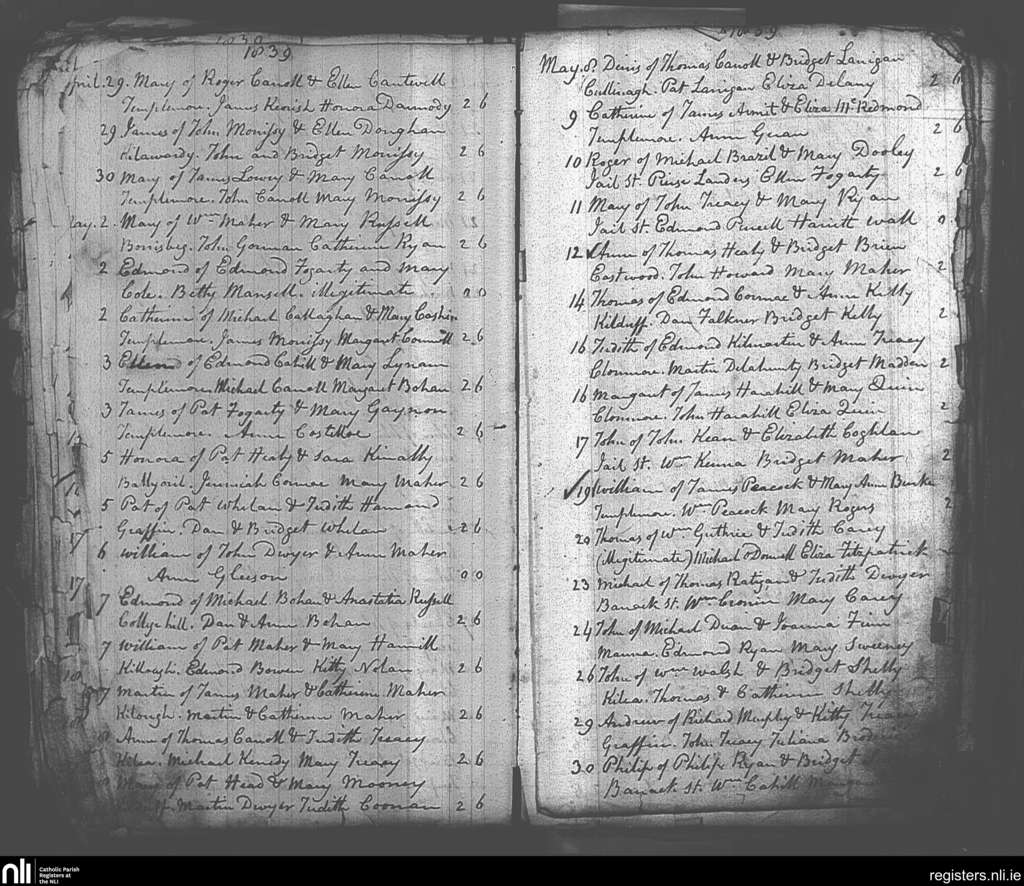 1839
April. 29. Mary of Roger Carroll & Ellen Cantwell
Templemore. James Kevish Honora Darmody 2 6
29 James of John Morrissy & Ellen Donghan
Kilawardy. John and Bridget Morrissy 2 6
30 Mary of James Lowry & Mary Carroll
Templemore. John Carroll Mary Morrissy 2 6
May. 2. Mary of Wm Maher & Mary Russell
Borrisbeg. John Gorman Catherine Ryan 2 6
2 Edmond of Edmond Fogarty and Mary
Cole. Betty Mansell. illegitimate 0 0
2 Catherine of Michael Callaghan & Mary Cashin
Templemore. James Morrissy Margaret Connell 2 6
3 Ellen of Edmond Cahill & Mary Lynam
Templemore. Michael Carroll Margaret Bohan 2 6
3 James of Pat Fogarty & Mary Gaynon
Templemore. Anne Costelloe 2 6
5 Honora of Pat Healy & Sara Kinally
Ballycarl. Jeremiah Cormac Mary Maher 2 6
5 Pat of Pat Whelan & Judith Hammond
Graffin. Dan & Bridget Whelan 2 6
6 William of John Dwyer & Anne Maher
Anne Gleeson 0 0
7 Edmond of Michael Bohan & Anastatia Russell
College hill. Dan & Anne Bohan 2 6
7 William of Pat Maher & Mary Hamill
Killough. Edmond Bowen Kitty Nolan 2 6
7 Martin of James Maher & Catherine Maher
Kilough. Martin & Catherine Maher 2 6
8 Anne of Thomas Carroll & Judith Treacy
Kilea. Michael Kenedy Mary Treacy 2 6
Mary of Pat Head & Mary Mooney
Martin Dwyer Judith Coonan 2 6
1839
May. 8. Denis of Thomas Carroll & Bridget Lanigan
Cullenagh. Pat Lanigan Eliza Delany 2 6
9 Catherine of James Armit & Eliza McRedmond
Templemore. Anne Guian 2 6
10 Roger of Michael Brazil & Mary Dooley
Jail St. Pierse Landers Ellen Fogarty 2 6
11 Mary of John Treacy & Mary Ryan
Jail St. Edmond Purcell Hariett Wall
12 Anne of Thomas Healy & Bridget Brien
Eastwood. John Howard Mary Maher 2
14 Thomas of Edmond Cormac & Anne Kelly
Kilduff. Dan Falkner Bridget Kelly 2
16 Judith of Edmond Kilmartin & Anne Treacy
Clonmore. Martin Delahunty Bridget Madden 2
16 Margaret of James Harahill & Mary Quin
Clonmore. John Harahill Eliza Quin 2
17 John of John Kean & Elizabeth Coghlan
Jail St. Wm Kenna Bridget Maher 2
19 William of James Peacock & Mary Ann Burke
Templemore. Wm Peacock Mary Rogers 2
20 Thomas of Wm Guthrie & Judith Carey
(Illegitimate) Michael O'Donnell Eliza Fitzpatrick
23 Michael of Thomas Ratigan & Judith Dwyer
Barrack St. Wm Cronin Mary Carey
24 John of Michael Duan & Joanna Finn
Manna. Edmond Ryan Mary Sweeney
26 John of Wm Walsh & Bridget Shelly
Kilea. Thomas & Catherine Shelly
29 Andrew of Richard Murphy & Kitty Treacy
Graffin. John Treacy Juliana
30 Philip of Philip Ryan & Bridget
Barrack St. Wm Cahill
nli Catholic Parish Registers at the NLI
registers.nli.ie